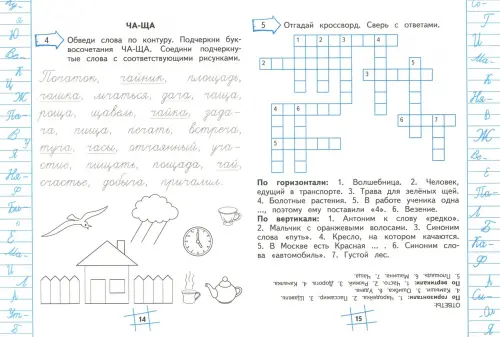 ЧА-ЩА
4
Обведи слова по контуру. Подчеркни бук-
восочетания ЧА-ЩА. Соедини подчеркну-
тые слова с соответствующими рисунками.
Початок, чайник, площадь,
чашка, мчаться, дача, чаща,
роща, щавель, чайка, зада-
ча, пища, почать, встреча,
туча, часы, отчаянный, уча-
стие, пищать, пощада, чай,
счастье, добыча, причалил.
14
5
Отгадай кроссворд. Сверь с ответами.
1 2 3 4 5
2
3
4 6
6 7
5
По горизонтали: 1. Волшебница. 2. Человек,
едущий в транспорте. 3. Трава для зелёных щей.
4. Болотные растения. 5. В работе ученика одна
..., поэтому ему поставили «4». 6. Везение.
По вертикали: 1. Антоним к слову «редко».
2. Мальчик с оранжевыми волосами. 3. Синоним
слова «путь». 4. Кресло, на котором качаются.
5. В Москве есть Красная ... . 6. Синоним сло-
ва «автомобиль». 7. Густой лес.
ОТВЕТЫ:
По горизонтали: 1. Чародейка. 2. Пассажир. 3. Щавель.
4. Камыши. 5. Ошибка. 6. Удача.
По вертикали: 1. Часто. 2. Рыжий. 3. Дорога. 4. Качалка.
5. Площадь. 6. Машина. 7. Чаща.
15